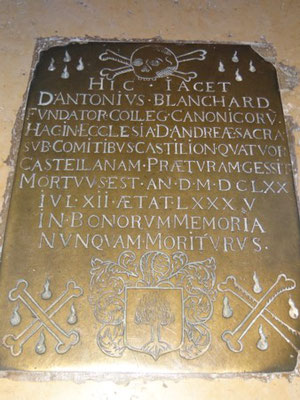 HIC · IACET
D·ANTONIVS · BLANCHARD
FVNDATOR COLLEG·CANONICORV
HAC IN ECCLESIA D·ANDREÆ SACRA
SVB·COMITIBVS CASTILION QVATVOR
CASTELLANAM·PRÆTVRAM GESSIT
MORTVVS EST·AN·D·M·DCLXX
IVL·XII·ÆTAT·LXXX V
IN·BONORVM MEMORIA
NVNQVAM MORITVRVS·